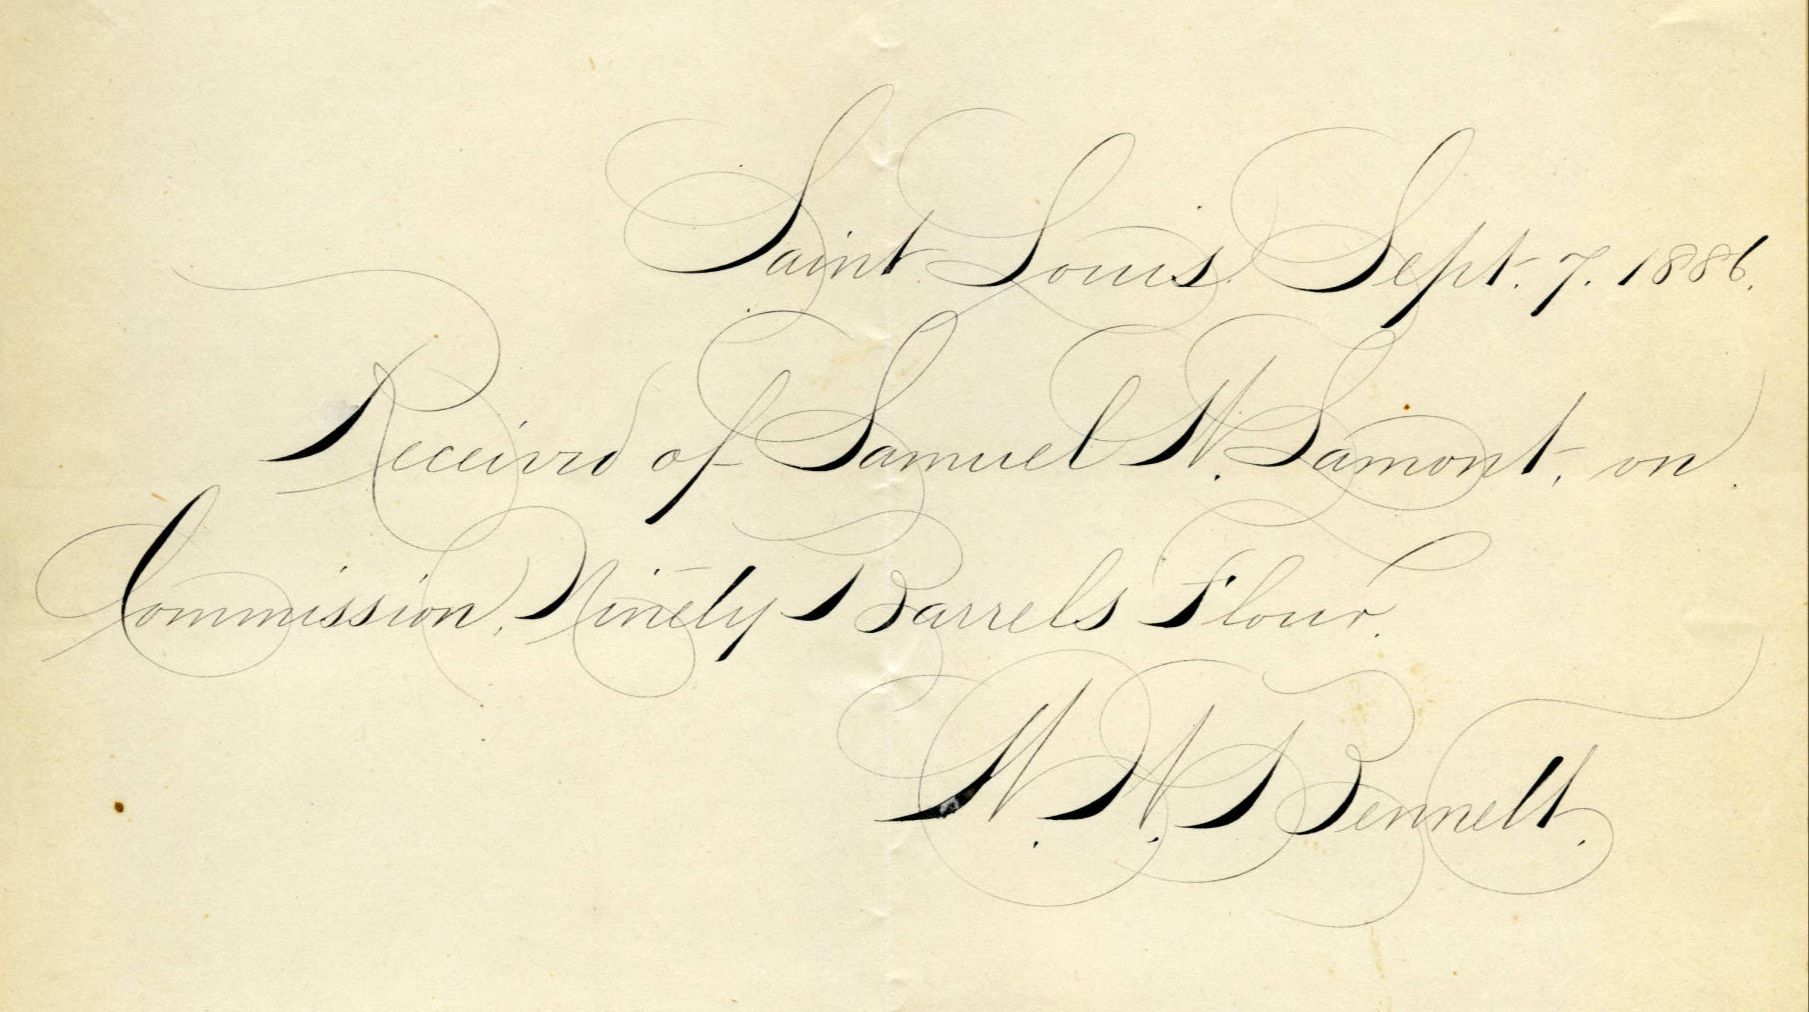 Saint Louis Sept. 7. 1886.
Received of Samuel N. Lamont, on
Commission, Ninety Barrels Flour.
N. N. Bennett.